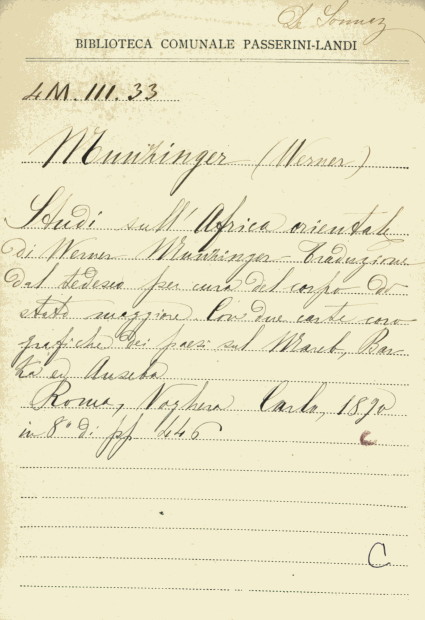 De Sonnaz
BIBLIOTECA COMUNALE PASSERINI-LANDI
4 M. III. 33
Munzinger (Werner)
Studi sull'Africa orientale
di Werner Munzinger Traduzione
dal tedesco per cura del corpo di
stato maggiore Con due carte coro
grafiche dei paesi sul Mareb, Bar
ka ed Anseba
Roma, Voghera Carlo, 1890
in 8° di pp 446
C
C